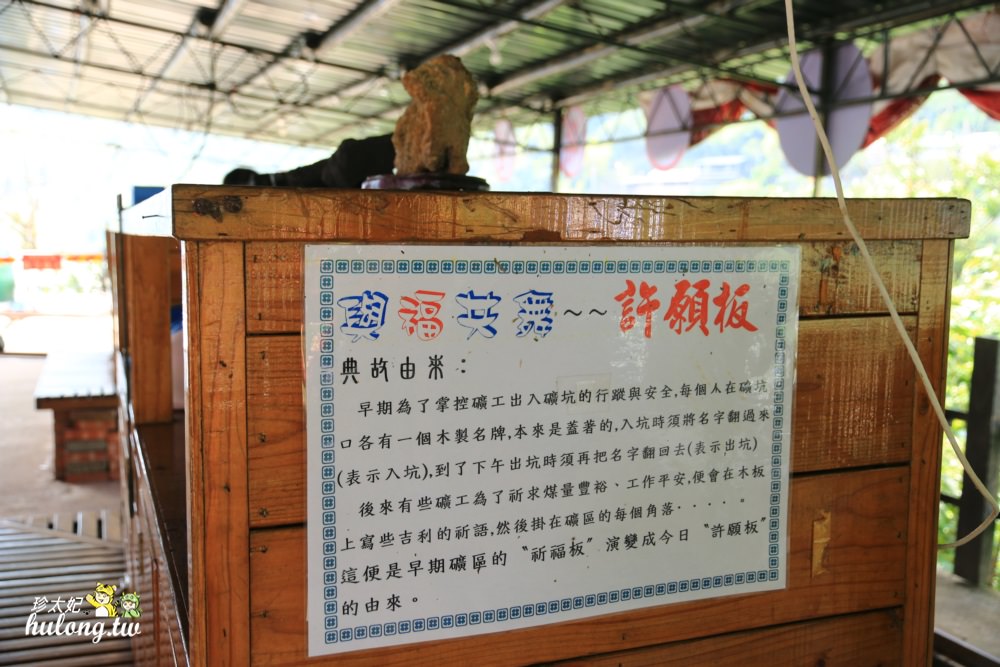 與福共舞~~許願板
典故由來：
早期為了掌控礦工出入礦坑的行蹤與安全,每個人在礦坑
口各有一個木製名牌,本來是蓋著的,入坑時須將名字翻過來
(表示入坑),到了下午出坑時須再把名字翻回去(表示出坑)
後來有些礦工為了祈求煤量豐裕、工作平安,便會在木板
上寫些吉利的祈語,然後掛在礦區的每個角落‧‧‧‧。
這便是早期礦區的〝祈福板〞演變成今日〝許願板〞
的由來。
珍太妃
hulong.tw